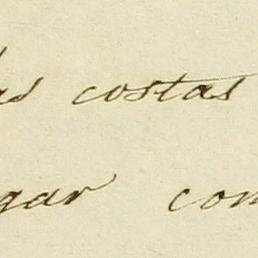 as costas
gar com